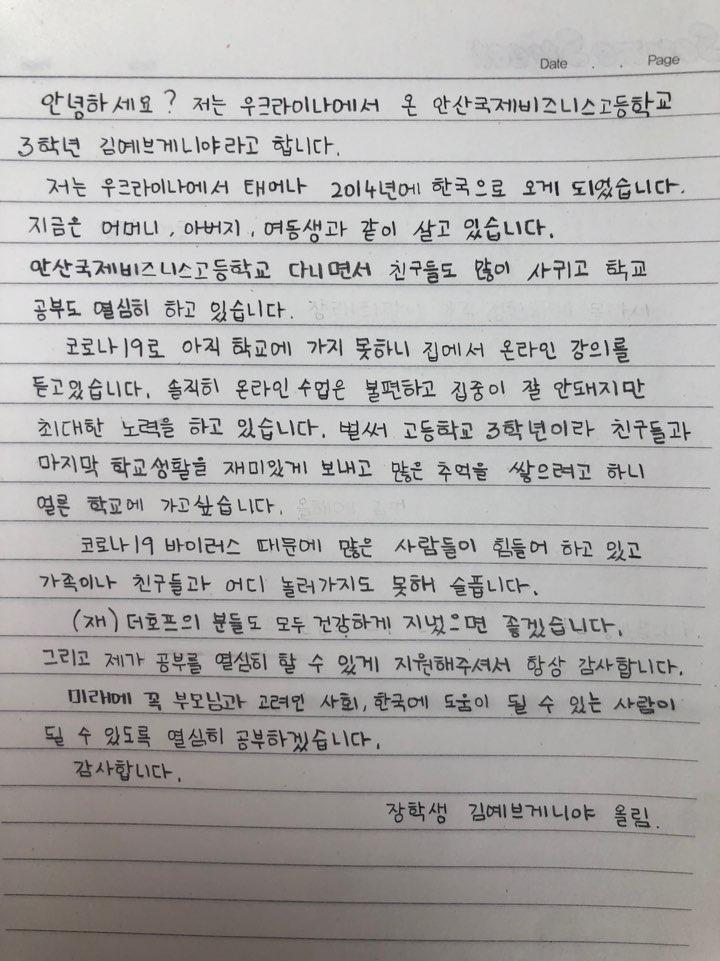 Date . . Page
안녕하세요? 저는 우크라이나에서 온 안산국제비즈니스고등학교
3학년 김예브게니야라고 합니다.
저는 우크라이나에서 태어나 2014년에 한국으로 오게 되었습니다.
지금은 어머니, 아버지, 여동생과 같이 살고 있습니다.
안산국제비즈니스고등학교 다니면서 친구들도 많이 사귀고 학교
공부도 열심히 하고 있습니다.
코로나19로 아직 학교에 가지 못하니 집에서 온라인 강의를
듣고있습니다. 솔직히 온라인 수업은 불편하고 집중이 잘 안돼지만
최대한 노력을 하고 있습니다. 벌써 고등학교 3학년이라 친구들과
마지막 학교생활을 재미있게 보내고 많은 추억을 쌓으려고 하니
얼른 학교에 가고싶습니다.
코로나19 바이러스 때문에 많은 사람들이 힘들어 하고 있고
가족이나 친구들과 어디 놀러가지도 못해 슬픕니다.
(재) 더호프의 분들도 모두 건강하게 지냈으면 좋겠습니다.
그리고 제가 공부를 열심히 할 수 있게 지원해주셔서 항상 감사합니다.
미래에 꼭 부모님과 고려인 사회, 한국에 도움이 될 수 있는 사람이
될 수 있도록 열심히 공부하겠습니다.
감사합니다.
장학생 김예브게니야 올림.